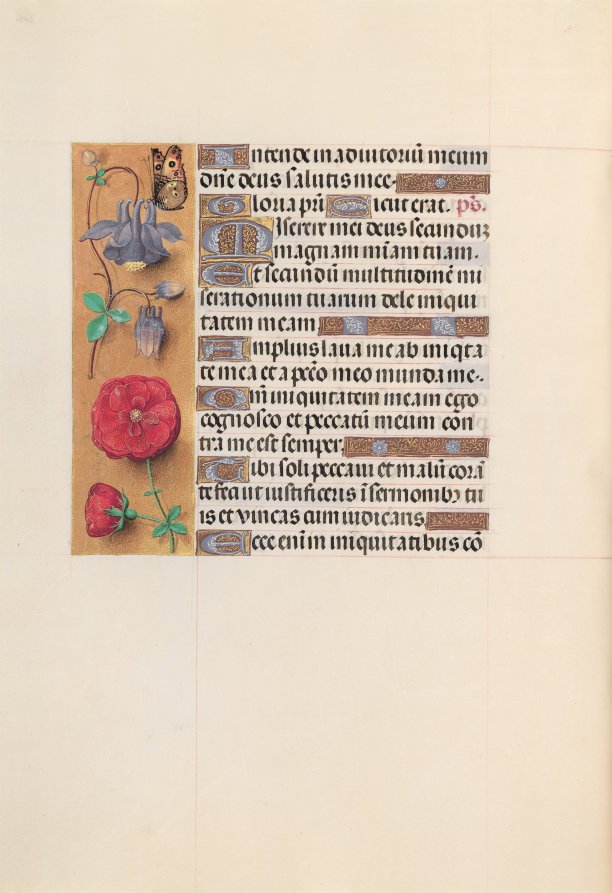 Intende in adiutoriū meum
dn̄e deus salutis mee.
Gloria pr̄i Sicut erat. ps̄.
Miserere mei deus secunduꝫ
magnam mīam tuam.
Et secundū multitudinē mi
serationum tuarum dele iniqui
tatem meam
Amplius laua me ab iniqta
te mea et a pcc̄o meo munda me.
Qm̄ iniquitatem meam ego
cognosco et peccatū meum con
tra me est semper
Tibi soli peccaui et malū corā
te feci ut iustificeris ī sermonibꝫ tu
is et vincas cum iudicaris
Ecce enim in iniquitatibus cō